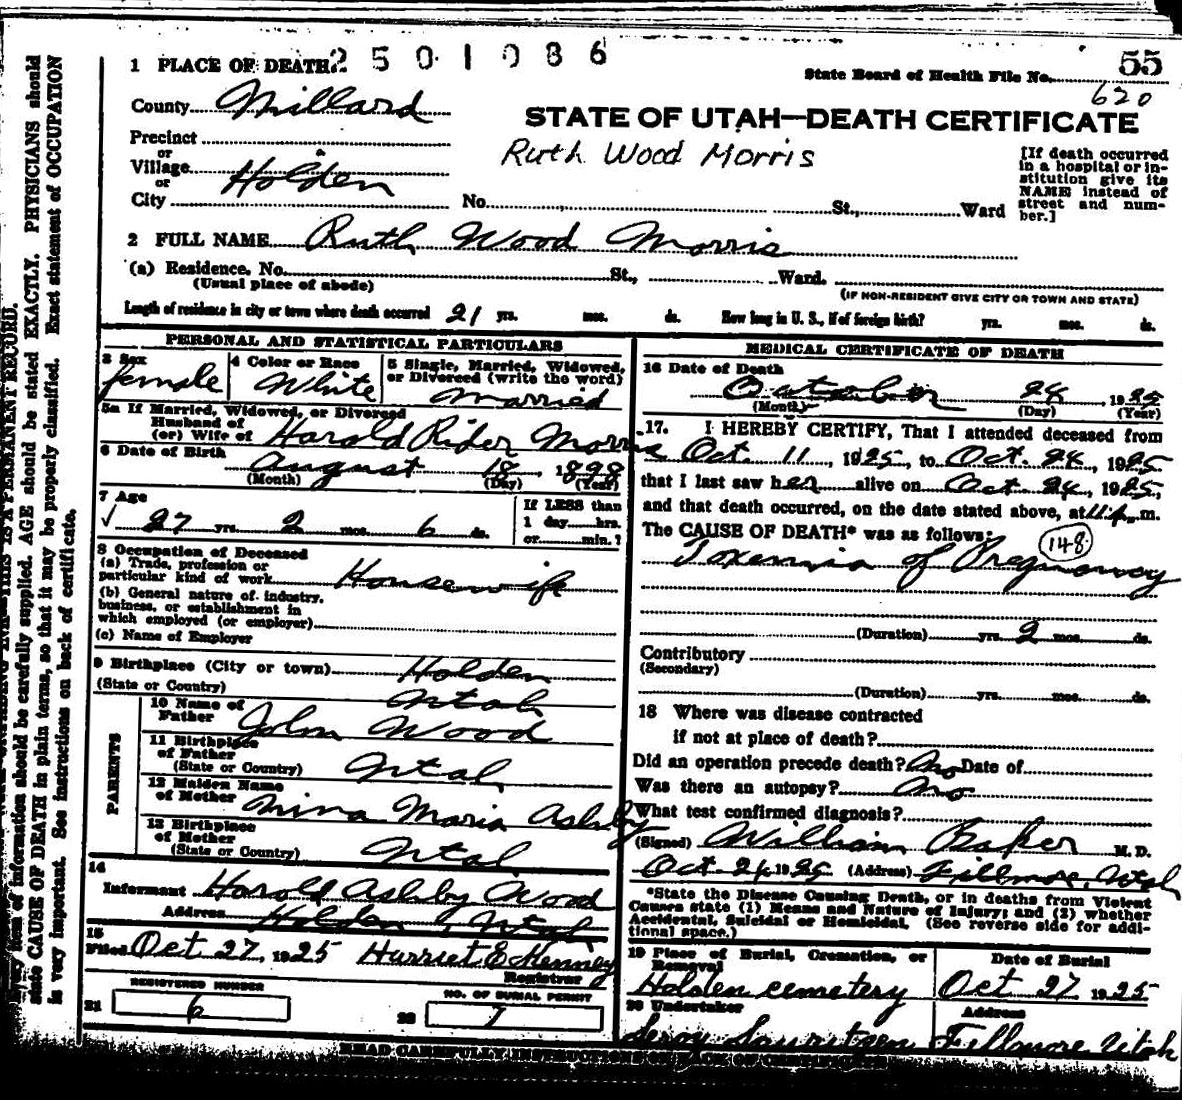 1 PLACE OF DEATH 2501086
State Board of Health File No. 55
620
County Millard
STATE OF UTAH—DEATH CERTIFICATE
Precinct
or
Village
or
City
Holden
Ruth Wood Morris
[If death occurred
in a hospital or in-
stitution give its
NAME instead of
street and num-
ber.]
No. St., Ward
2 FULL NAME Ruth Wood Morris
(a) Residence. No. St., Ward.
(Usual place of abode)
(IF NON-RESIDENT GIVE CITY OR TOWN AND STATE)
Length of residence in city or town where death occurred 21 yrs. mos. ds. How long in U. S., if of foreign birth? yrs. mos. ds.
PERSONAL AND STATISTICAL PARTICULARS
3 Sex
female
4 Color or Race
White
5 Single, Married, Widowed,
or Divorced (write the word)
Married
5a If Married, Widowed, or Divorced
Husband of
(or) Wife of Harold Rider Morris
6 Date of Birth
August 18, 1898
(Month) (Day) (Year)
7 Age
√ 27 yrs. 2 mos. 6 ds.
If LESS than
1 day hrs.
or min.?
8 Occupation of Deceased
(a) Trade, profession or
particular kind of work Housewife
(b) General nature of industry,
business, or establishment in
which employed (or employer)
(c) Name of Employer
9 Birthplace (City or town) Holden
(State or Country) Utah
PARENTS
10 Name of
Father John Wood
11 Birthplace
of Father
(State or Country) Utah
12 Maiden Name
of Mother Nina Maria Ashby
13 Birthplace
of Mother
(State or Country) Utah
14
Informant Harold Ashby Wood
Address Holden, Utah
15
Filed Oct 27, 1925 Harriet E Kenney
Registrar
REGISTERED NUMBER
21 6
NO. OF BURIAL PERMIT
22 7
MEDICAL CERTIFICATE OF DEATH
16 Date of Death
October 24, 1925
(Month) (Day) (Year)
17. I HEREBY CERTIFY, That I attended deceased from
Oct. 11, 1925, to Oct. 24, 1925
that I last saw her alive on Oct 24, 1925,
and that death occurred, on the date stated above, at 11 p. m.
The CAUSE OF DEATH* was as follows: 148
Toxemia of Pregnancy
(Duration) yrs. 2 mos. ds.
Contributory
(Secondary)
(Duration) yrs. mos. ds.
18 Where was disease contracted
if not at place of death?
Did an operation precede death? No Date of
Was there an autopsy? No
What test confirmed diagnosis?
(Signed) William Baker M. D.
Oct. 24 1925 (Address) Fillmore, Utah
*State the Disease Causing Death, or in deaths from Violent
Causes state (1) Means and Nature of Injury; and (2) whether
Accidental, Suicidal or Homicidal. (See reverse side for addi-
tional space.)
19 Place of Burial, Cremation, or
Removal
Holden cemetery
Date of Burial
Oct 27 1925
20 Undertaker
Address
Fillmore Utah
READ CAREFULLY INSTRUCTIONS ON BACK OF CERTIFICATE
THIS IS A PERMANENT RECORD.
item of information should be carefully supplied. AGE should be stated EXACTLY. PHYSICIANS should
state CAUSE OF DEATH in plain terms, so that it may be properly classified. Exact statement of OCCUPATION
is very important. See instructions on back of certificate.